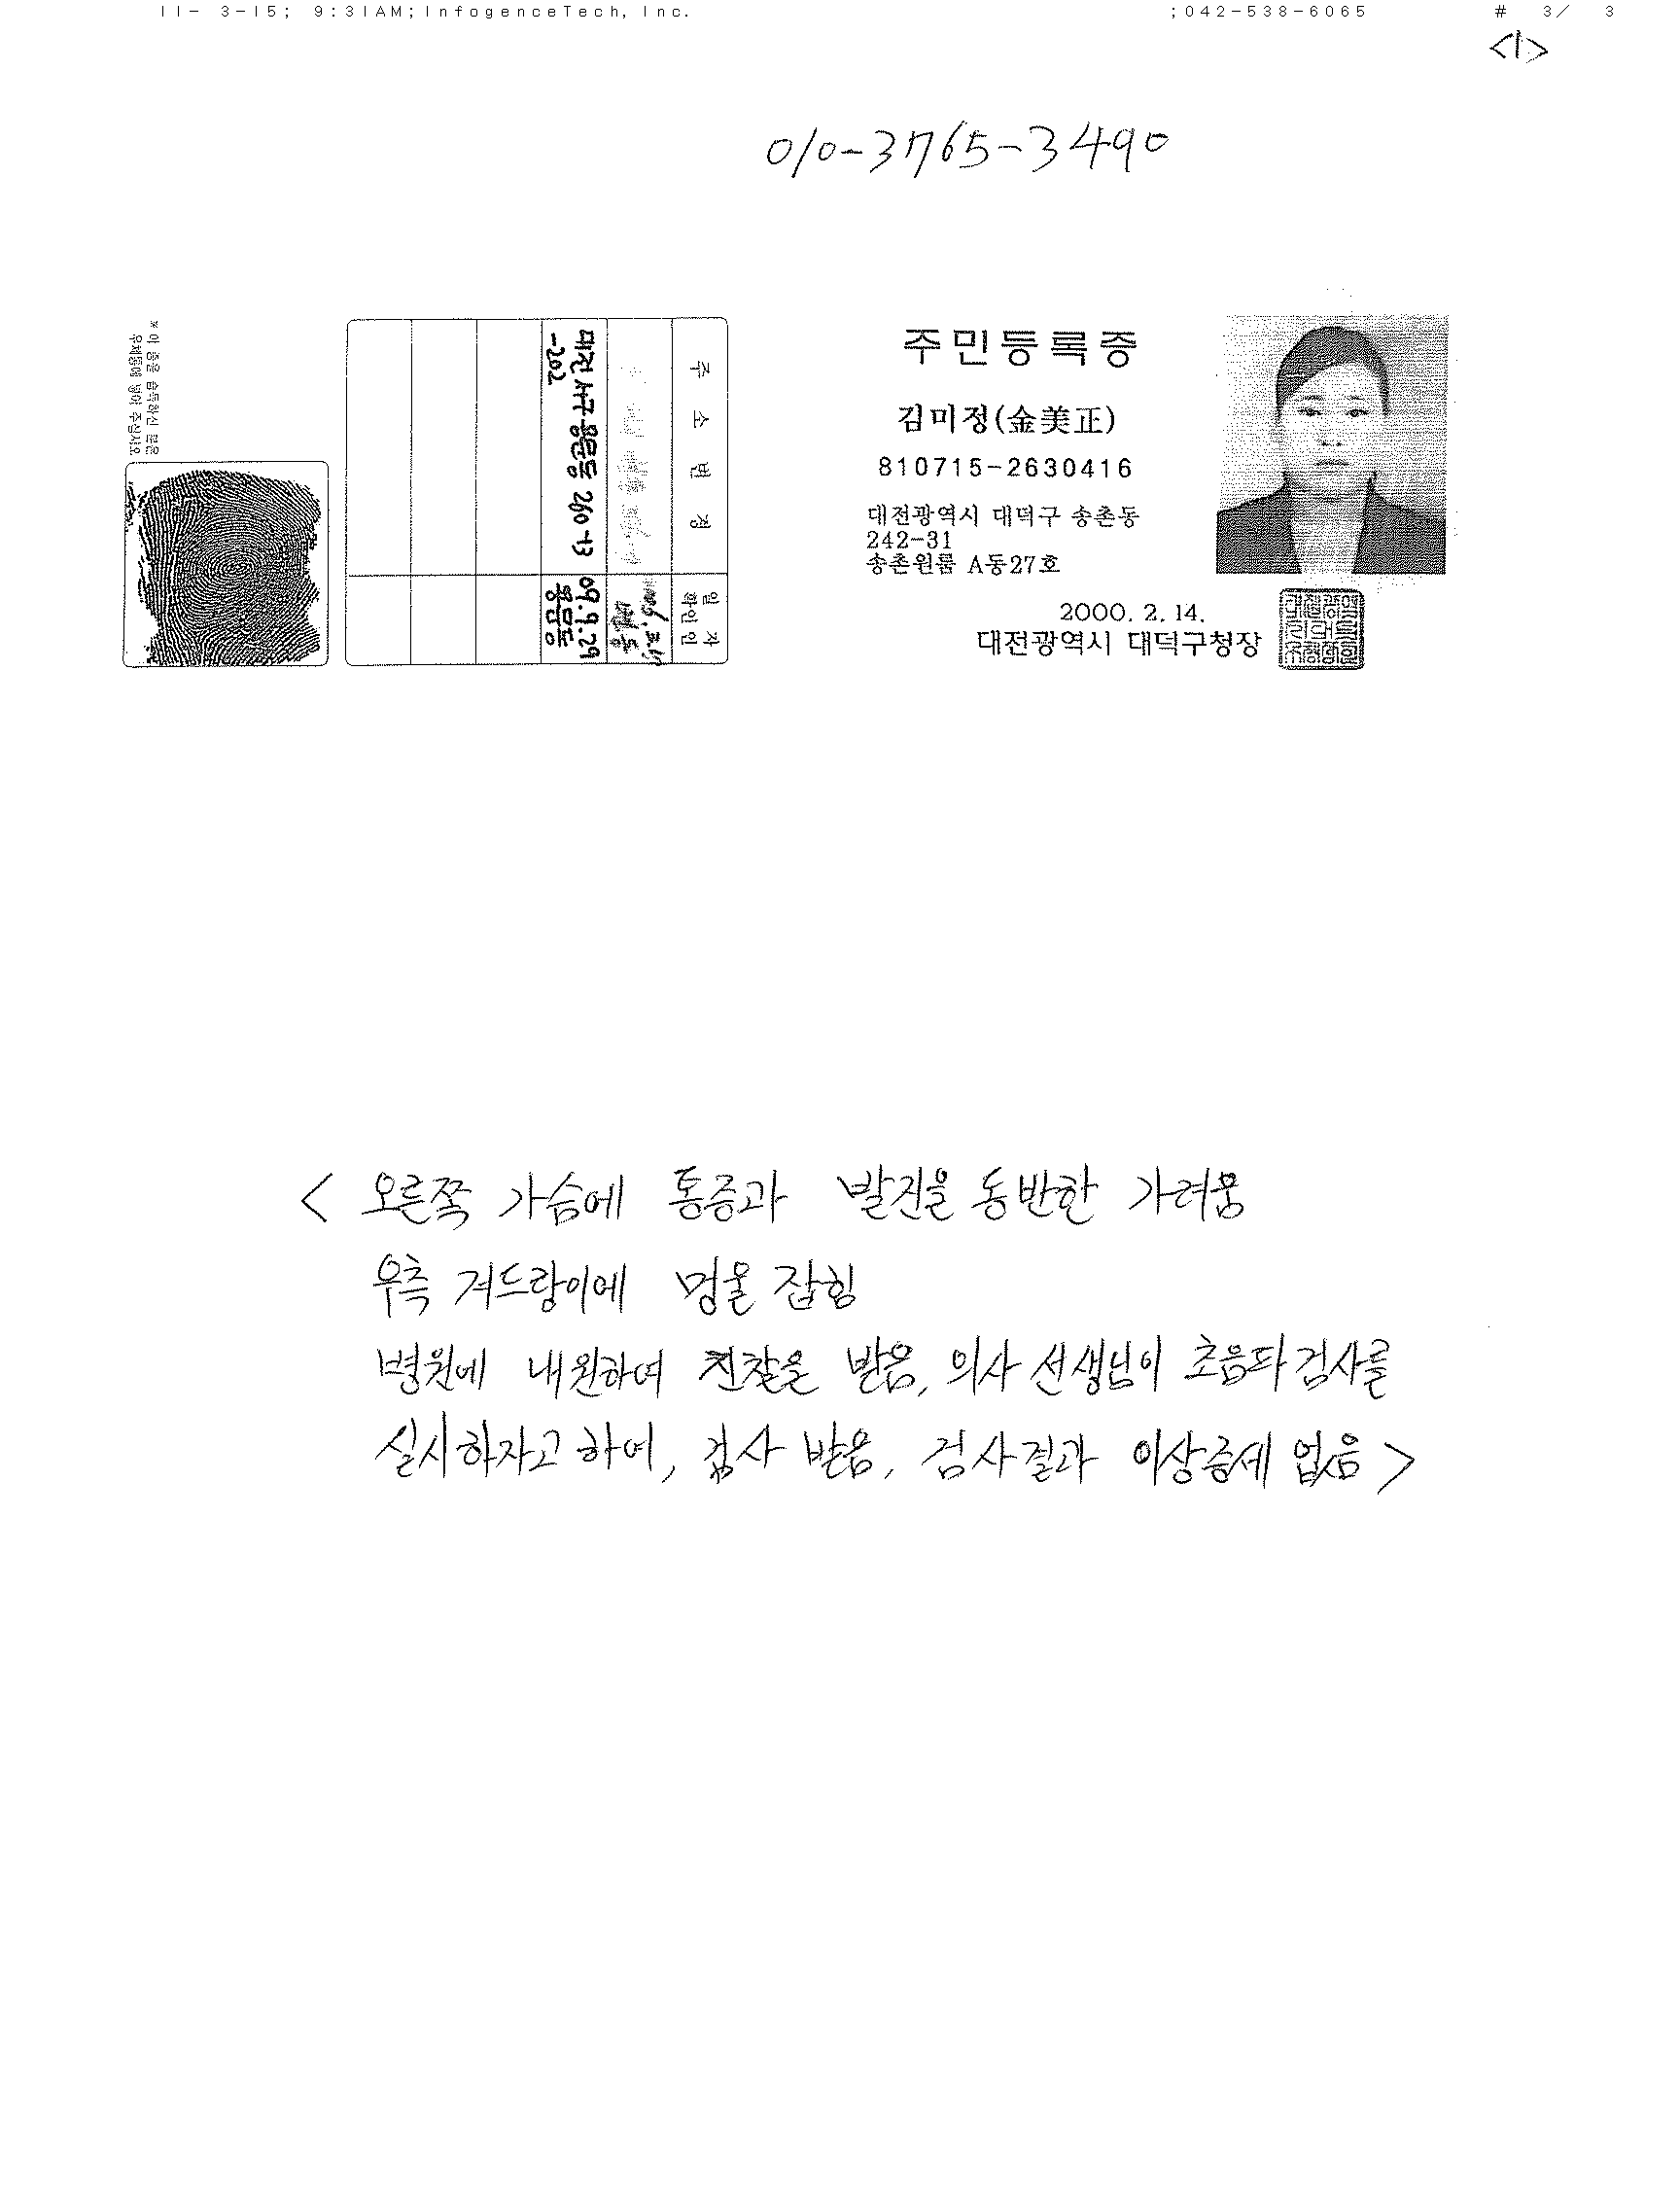 11- 3-15; 9:31AM;InfogenceTech, Inc. ;042-538-6065 # 3/ 3
<1>
010-3765-3490
※ 이 증을 습득하신 분은
우체통에 넣어 주십시오
주소변경
일자
확인인
대전 서구 용문동 260-13
-202
09.9.29
용문동
주민등록증
김미정(金美正)
810715-2630416
대전광역시 대덕구 송촌동
242-31
송촌원룸 A동27호
2000. 2. 14.
대전광역시 대덕구청장
< 오른쪽 가슴에 통증과 발진을 동반한 가려움
우측 겨드랑이에 멍울 잡힘
병원에 내원하여 진찰을 받음, 의사 선생님이 초음파 검사를
실시하자고 하여, 검사 받음. 검사결과 이상증세 없음 >